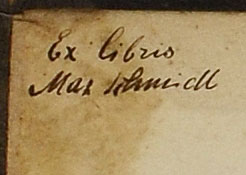 Ex libris
Max Schmidt